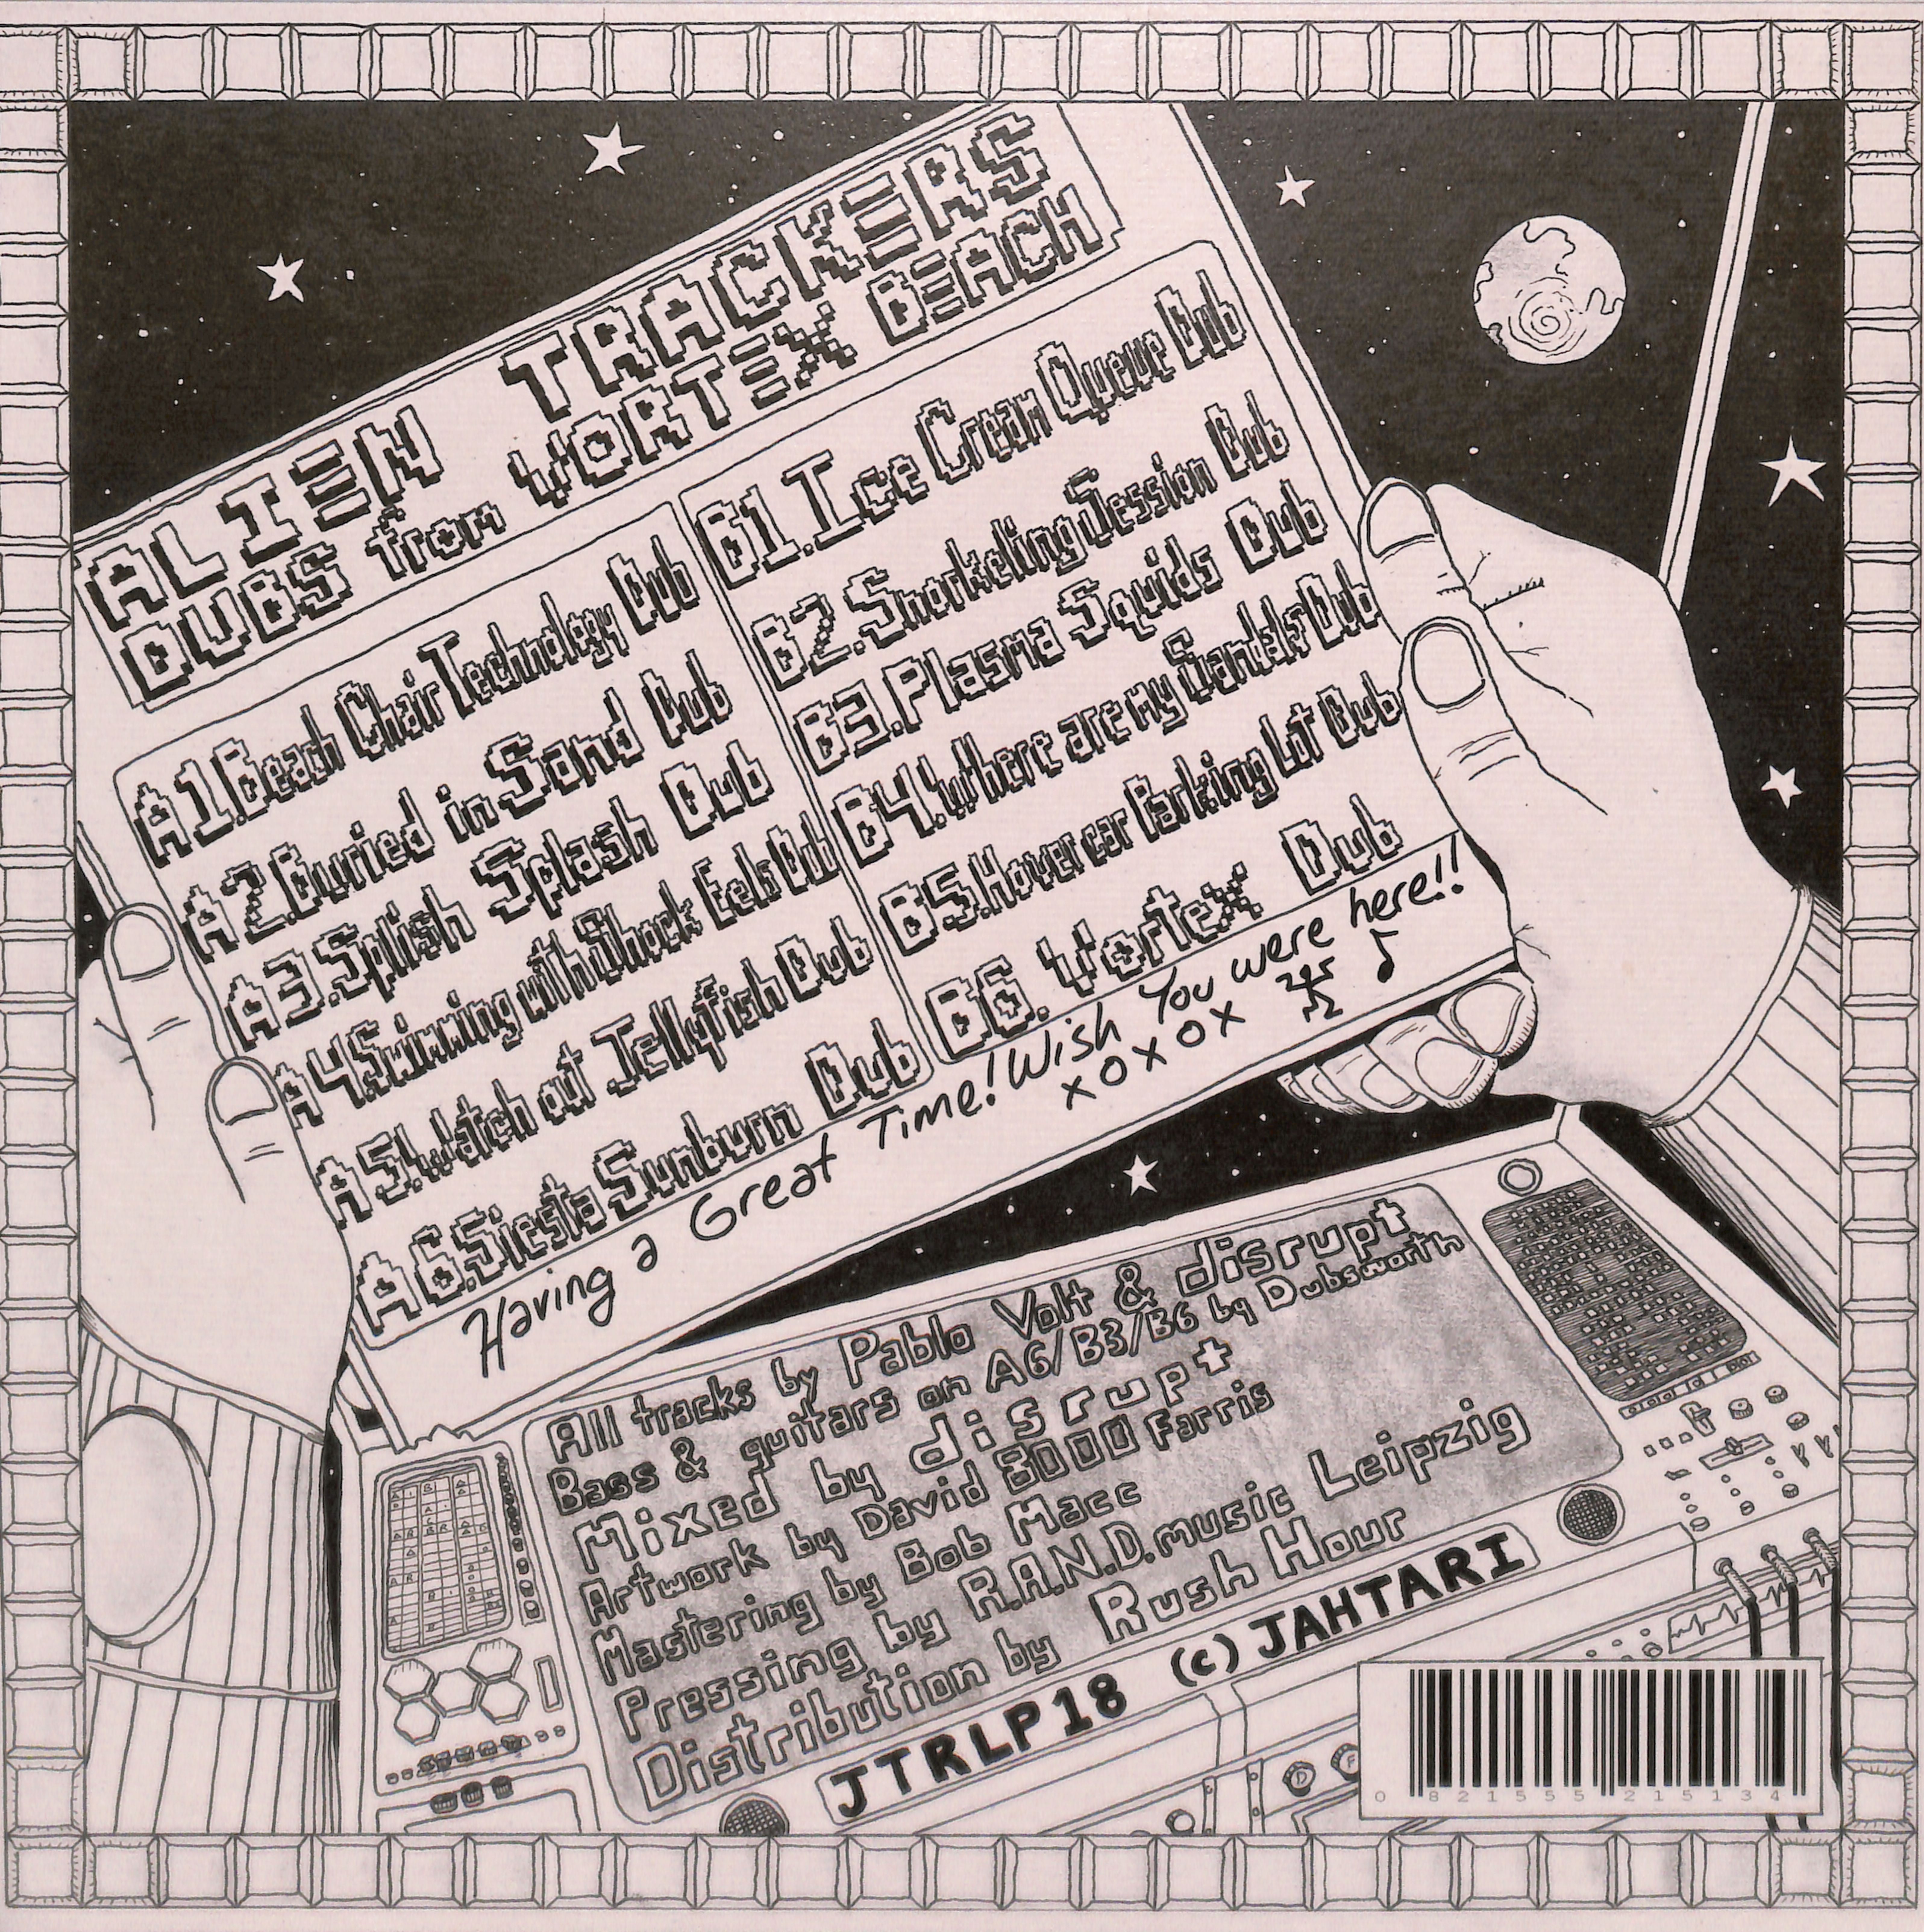 ALIEN TRACKERS
DUBS from VORTEX BEACH
A1. Beach Chair Technology Dub
A2. Buried in Sand Dub
A3. Splish Splash Dub
A4 Swimming with Shock Eels Dub
A5. Watch out Jellyfish Dub
A6. Siesta Sunburn Dub
B1. Ice Cream Queue Dub
B2. Snorkeling Session Dub
B3. Plasma Squids Dub
B4. Where are My Sandals Dub
B5. Hovercar Parking Lot Dub
B6. Vortex Dub
Having a Great Time! Wish You were here!!
xoxox
All tracks by Pablo Volt & disrupt
Bass & guitars on A6/B3/B6 by Dubsworth
Mixed by disrupt
Artwork by David 8000 Farris
Mastering by Bob Macc
Pressing by R.A.N.D. music Leipzig
Distribution by Rush Hour
JTRLP18 (c) JAHTARI
0 821555 215134